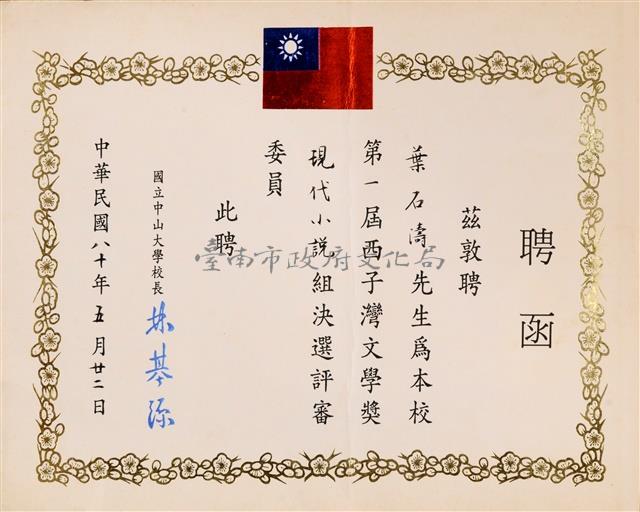 聘函
茲敦聘
葉石濤先生為本校
第一屆西子灣文學獎
現代小說組決選評審
委員
此聘
國立中山大學校長 林基源
中華民國八十年五月廿二日
臺南市政府文化局